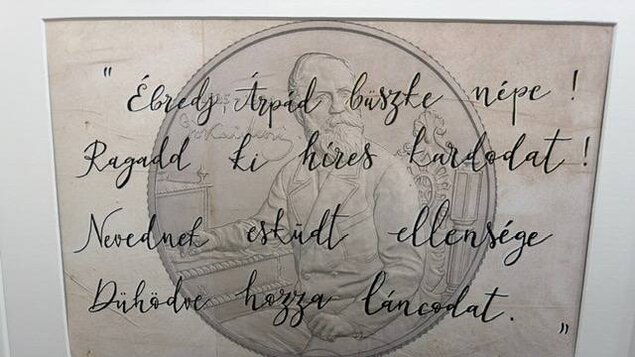 " Ébredj Árpád büszke népe !
Ragadd ki híres kardodat !
Nevednek esküdt ellensége
Dühödve hozza láncodat. "